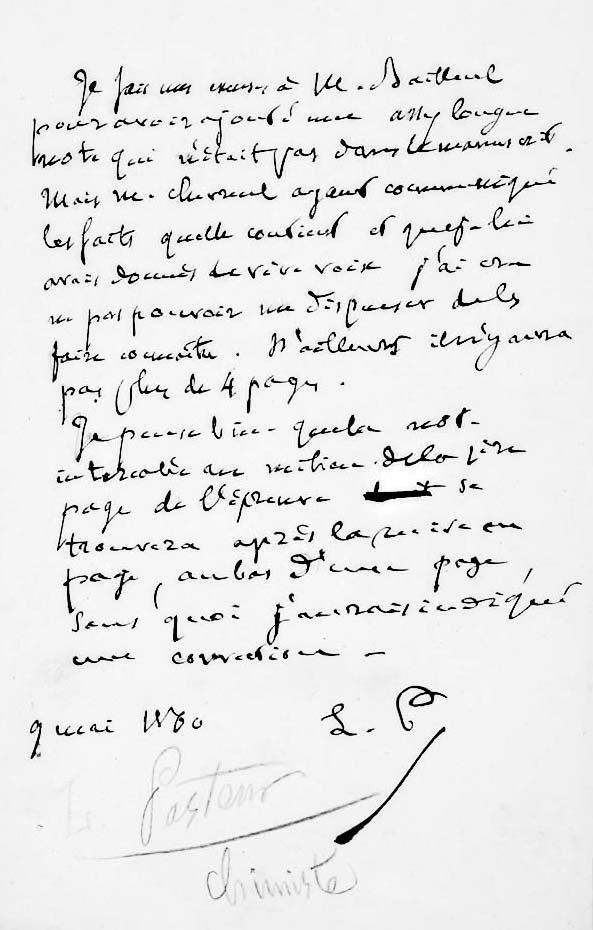 Je fais mes excuses à M. Bailleul
pour avoir ajouté une assez longue
note qui n'était pas dans le manuscrit.
Mais M. Chevreul ayant communiqué
les faits qu'elle contient et que je lui
avais donnés de vive voix j'ai cru
ne pas pouvoir me dispenser de les
faire connaître. D'ailleurs il n'y aura
pas plus de 4 pages.
Je pense bien que la note
intercalée au milieu de la 1ère
page de l'épreuve se
trouvera après la mise en
page, au bas d'une page,
sans quoi j'aurais indiqué
une correction –
9 mai 1860 L. P
L. Pasteur
chimiste